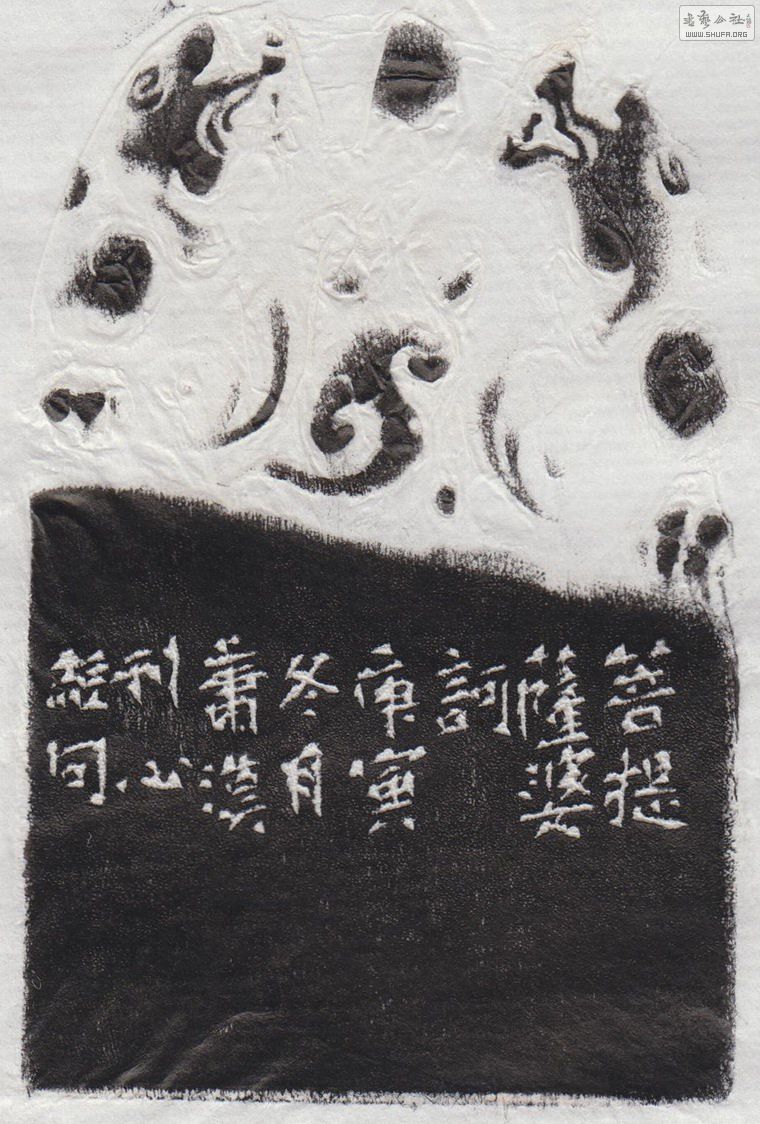 菩提
薩婆
訶
庚寅
冬月
蕭
刊心
經句
書藝公社
WWW.SHUFA.ORG